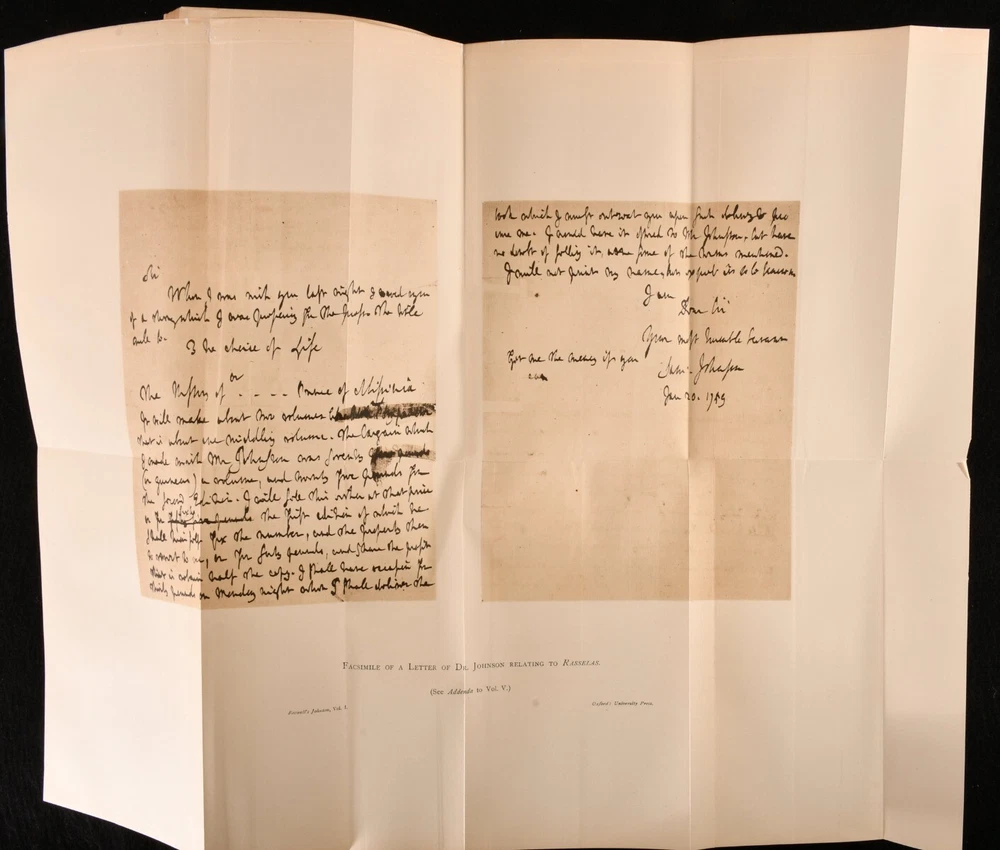 Sir
When I was with you last night I told you
of a thing which I was preparing for the press. The title
will be
The choice of Life
or
The History of - - - - Prince of Abissinia
It will make about two volumes
that is about one middling volume. The bargain which
I made with Mr Johnson was seventy five pounds
(or guineas) a volume, and twenty five pounds for
the second Edition. I will sell this either at that price
or for sixty the first edition of which he
shall himself fix the number, and the property then
to revert to me, or for forty pounds, and share the profit
that is retain half the copy. I shall have occasion for
thirty pounds on Monday night when I shall deliver the
book which I must entreat you upon such delivery to procure
me. I would have it offered to Mr Johnson, but have
no doubt of selling it, on some of the terms mentioned.
I will not print my name, but expect it to be known.
I am
Dear Sir
Your most humble servant
Sam: Johnson
Jan 20. 1759
Get me the money if you
can
FACSIMILE OF A LETTER OF DR. JOHNSON RELATING TO RASSELAS.
(See Addenda to Vol. V.)
Boswell's Johnson, Vol. I.
Oxford: University Press.